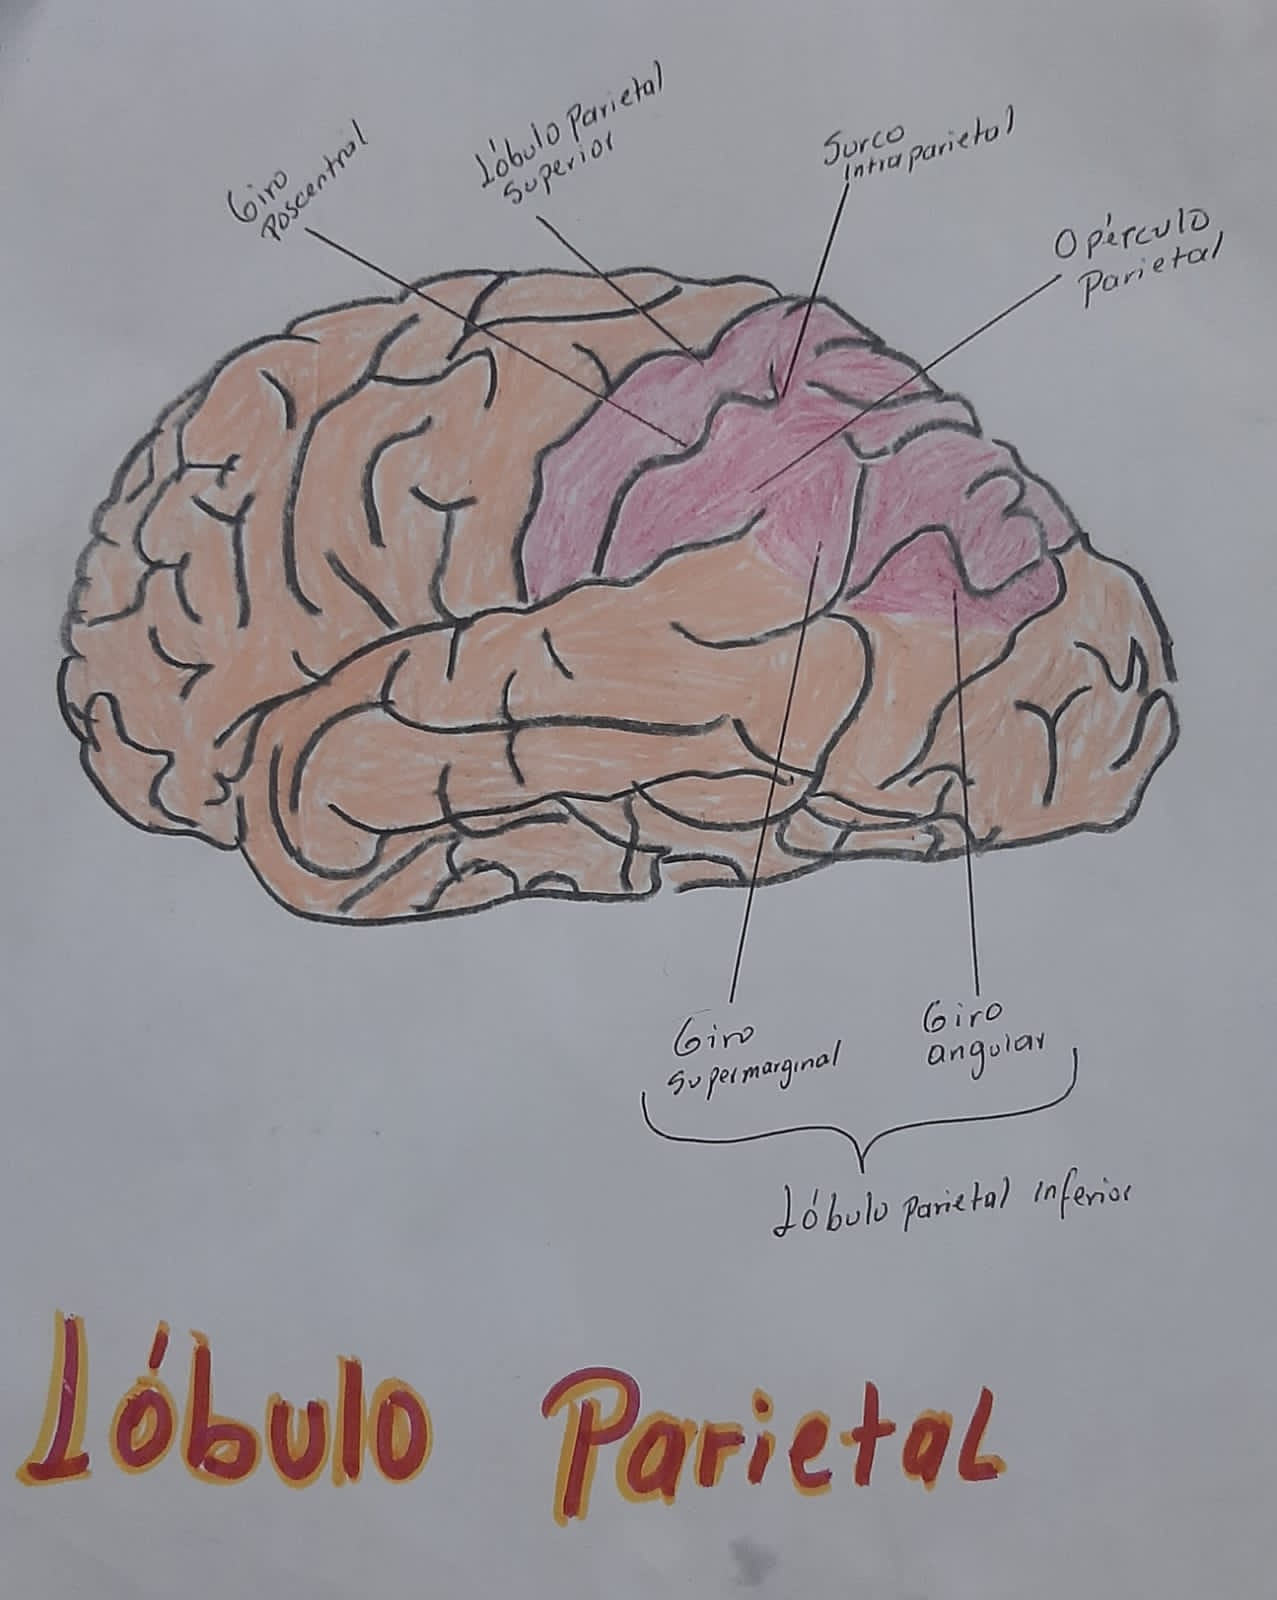 Giro
Poscentral
Lóbulo Parietal
Superior
Surco
Intraparietal
Opérculo
Parietal
Giro
Supermarginal
Giro
angular
Lóbulo parietal inferior
Lóbulo Parietal